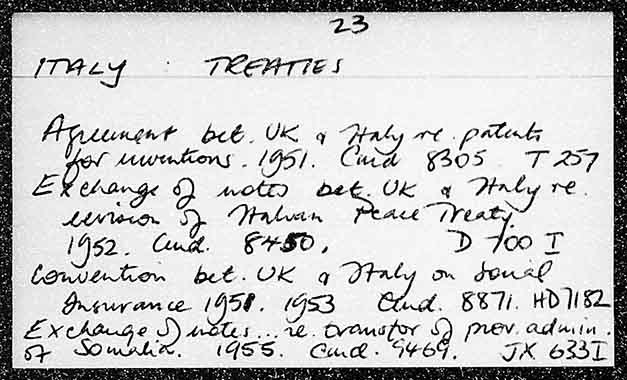 23
ITALY : TREATIES
Agreement bet. UK & Italy re. patents
for inventions. 1951. Cmd 8305 T 257
Exchange of notes bet. UK & Italy re.
revision of Italian Peace Treaty.
1952. Cmd. 8450. D 700 I
Convention bet. UK & Italy on Social
Insurance 1951. 1953 Cmd. 8871. HD7182
Exchange of notes... re. transfer of prov. admin.
of Somalia. 1955. Cmd. 9469. JX 633I